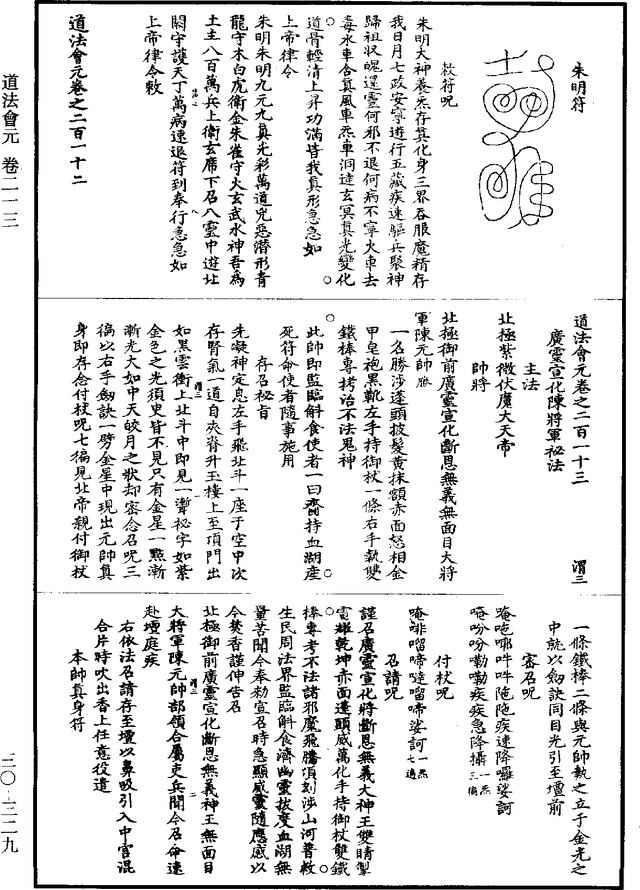 道法會元 卷二一三
三〇—三二九
朱明符
敕符呪
朱明大神養炁存箕化身三界吞服魔精存
我日月七政安寧遊行五藏疾速驅兵聚神
歸祖状魄還靈何邪不退何病不寧火車去
毒水車合真風車炁車洞達玄冥真光變化
道骨輕清上昇功滿皆我真形急急如
上帝律令
朱明朱明九元九真光彩萬道兇惡潜形青
龍守木白虎衛金朱雀守火玄武水神吾為
土主八百萬兵上衛玄席下召八靈中遊北
闕守護天丁萬病速退符到奉行急急如
上帝律令敕
道法會元卷之二百一十二
道法會元卷之二百一十三 渭三
廣靈宣化陳將軍秘法
主法
北極紫微伏魔大天帝
帥將
北極御前廣靈宣化斷恩無義無面目大將
軍陳元帥勝
一名勝涉蓬頭披髮黄抹額赤面怒相金
甲皂袍黑靴左手持御杖一條右手執雙
鐵棒專拷治不法鬼神
此帥即監臨斛食使者一曰齎持血湖産
死符命使者隨事施用
存召秘旨
先凝神定息左手飛北斗一座于空中次
存腎氣一道自夾脊升玉樓上至頂門出
如黑雲衝上北斗中即見一漸祕字如紫
金色之光須臾皆不見只有金星一點漸
漸光大如中天皎月之狀却密念召呪三
徧以右手劔訣一劈金星中現出元帥真
身即存念付杖呪七徧見北帝親付御杖
一條鐵棒二條與元帥執之立于金光之
中就以劔訣同目光引至壇前
密召呪
唵唈㖠吽吽陁陁疾速降囉娑訶
唵吩吩嘞嘞疾疾急降攝一炁三徧
付杖呪
唵啡㗻啼噠㗻啼娑訶一炁七遍
召請呪
謹召廣靈宣化將斷恩無義大神王雙睛掣
電耀乾坤赤面蓬頭威萬化手持御杖雙鐵
棒專考不法諸邪魔飛騰頃刻涉山河普救
生民周法界監臨斛食濟幽靈拔度血湖無
量苦聞令奉勑宣召時急顯威靈隨應感以
今焚香謹伸告召
北極御前廣靈宣化斷恩無義神王無面目
大將軍陳元帥部領合屬吏兵聞今召命速
赴壇庭疾
右依法召請存至壇以鼻吸引入中宫混
合片時吹出香上任意役遣
本帥真身符